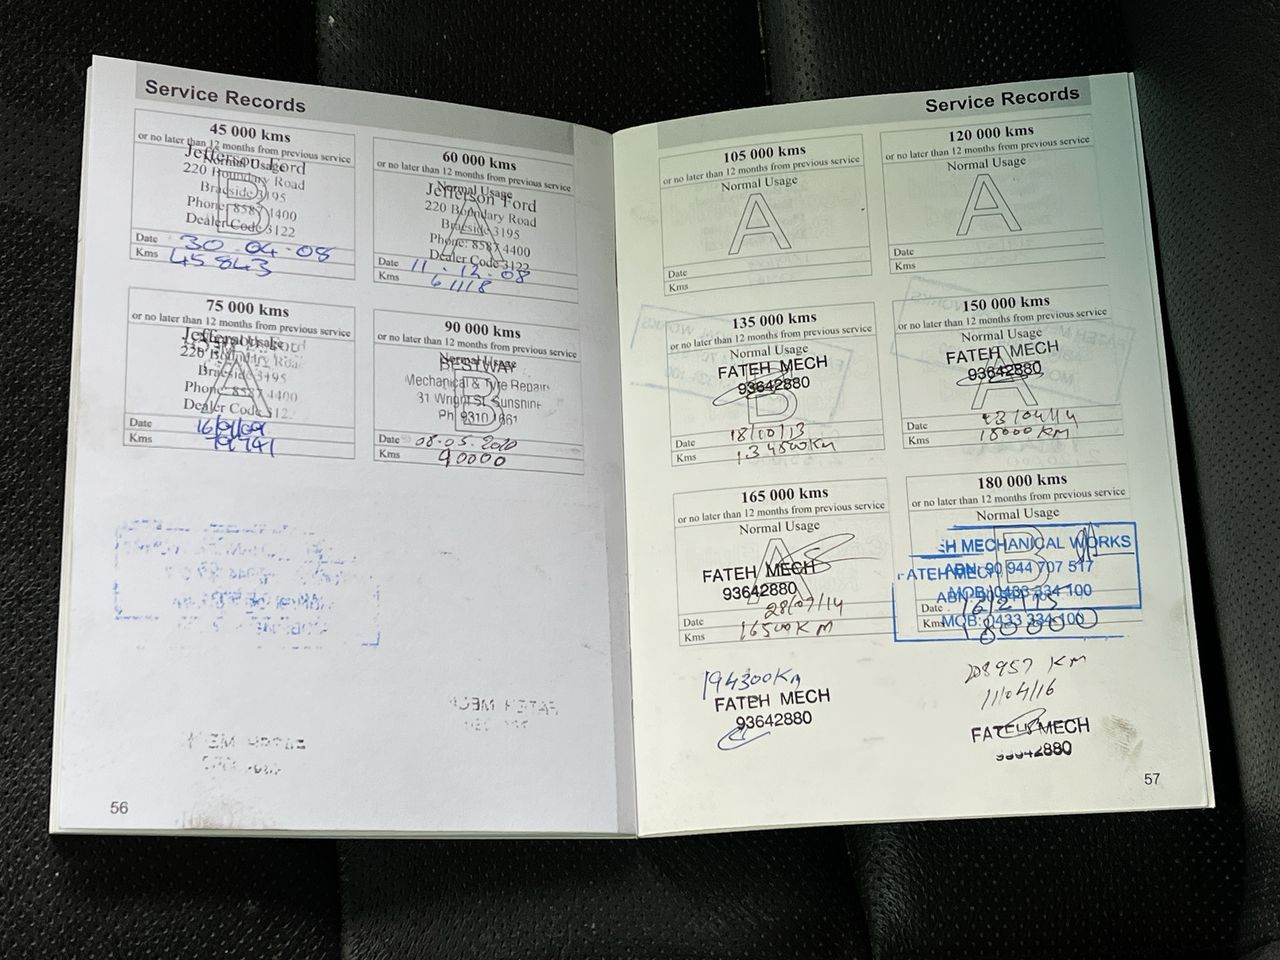 Service Records
45 000 kms
or no later than 12 months from previous service
Normal Usage
Jefferson Ford
220 Boundary Road
Braeside 3195
Phone: 8587 4400
Dealer Code 3122
B
Date 30.04.08
Kms 45843
60 000 kms
or no later than 12 months from previous service
Normal Usage
Jefferson Ford
220 Boundary Road
Braeside 3195
Phone: 8587 4400
Dealer Code 3122
A
Date 11.12.08
Kms 61118
75 000 kms
or no later than 12 months from previous service
Jefferson Ford
220 Boundary Road
Braeside 3195
Phone: 8587 4400
Dealer Code 312
A
Date
Kms
90 000 kms
or no later than 12 months from previous service
Normal Usage
BESTWAY
Mechanical & Tyre Repairs
31 Wright St. Sunshine
Ph 9310 1661
B
Date 08.05.2010
Kms 90000
56
Service Records
105 000 kms
or no later than 12 months from previous service
Normal Usage
A
Date
Kms
120 000 kms
or no later than 12 months from previous service
Normal Usage
A
Date
Kms
135 000 kms
or no later than 12 months from previous service
Normal Usage
FATEH MECH
93642880
B
Date 18/10/13
Kms 134500Km
150 000 kms
or no later than 12 months from previous service
Normal Usage
FATEH MECH
93642880
A
Date
Kms 15000 KM
165 000 kms
or no later than 12 months from previous service
Normal Usage
A
FATEH MECH
93642880
Date 28/07/14
Kms 16500KM
180 000 kms
or no later than 12 months from previous service
Normal Usage
B
H MECHANICAL WORKS
ABN: 90 944 707 517
MOB: 0433 334 100
ATEH MECH
MOB: 0433 334 100
Date 16/2/15
Kms 180000
194300Km
FATEH MECH
93642880
208957 KM
11/04/16
FATEH MECH
93642880
57